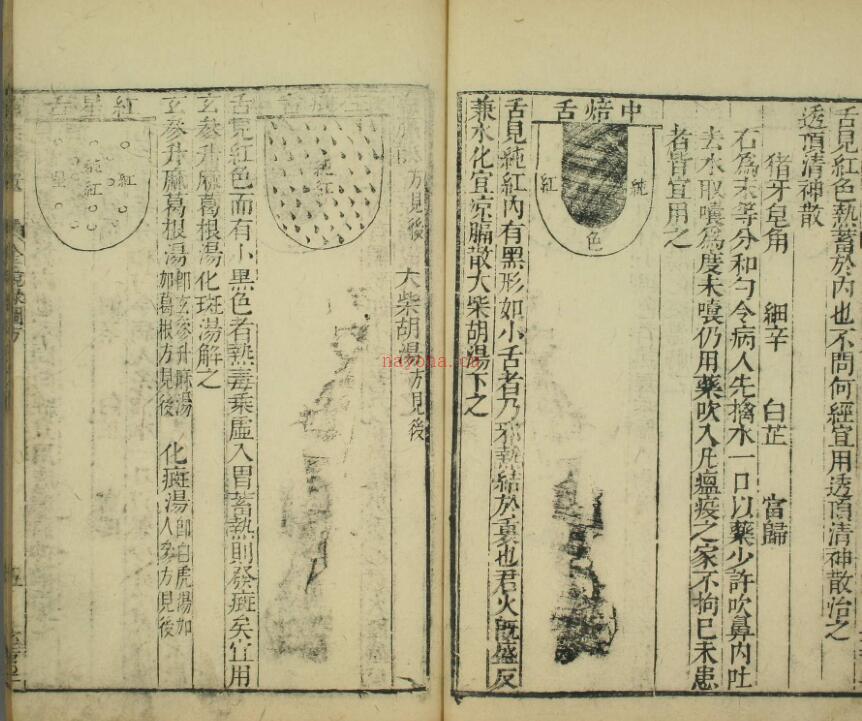 舌見紅色熱蓄於內也不問何經宜用透頂清神散治之
透頂清神散
猪牙皂角 細辛 白芷 當歸
右爲末等分和勻令病人先擒水一口以藥少許吹鼻內吐
去水取嚏爲度未嚏仍用藥吹入凡瘟疫之家不拘已未患
者皆宜用之
中焙舌
純
紅
色
舌見純紅內有黑形如小舌者乃邪熱結於裏也君火旣盛反
兼水化宜凉膈散大柴胡湯下之
方見後 大柴胡湯方見後
純紅
舌見紅色而有小黑色者熱毒乘虛入胃蓄熱則發斑矣宜用
玄參升麻葛根湯化斑湯解之
玄參升麻葛根湯卽玄參升麻湯加葛根方見後 化斑湯卽白虎湯加人參方見後
紅星舌
純紅
紅
星
nayona.cn